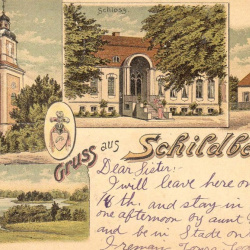 Schloss.
Gruss aus Schildbe
Dear Sister:-
I will leave here on
16th. and stay in
one afternoon by aunt
and be in Stade on